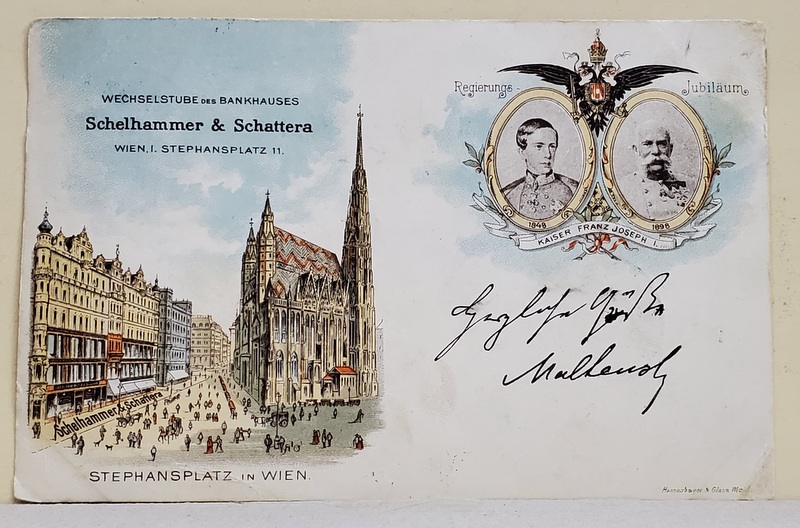 WECHSELSTUBE DES BANKHAUSES
Schelhammer & Schattera
WIEN, I. STEPHANSPLATZ 11.
Schelhammer & Schattera
STEPHANSPLATZ IN WIEN.
Regierungs- Jubiläum
1848 1898
KAISER FRANZ JOSEPH I.
Herzliche Grüße